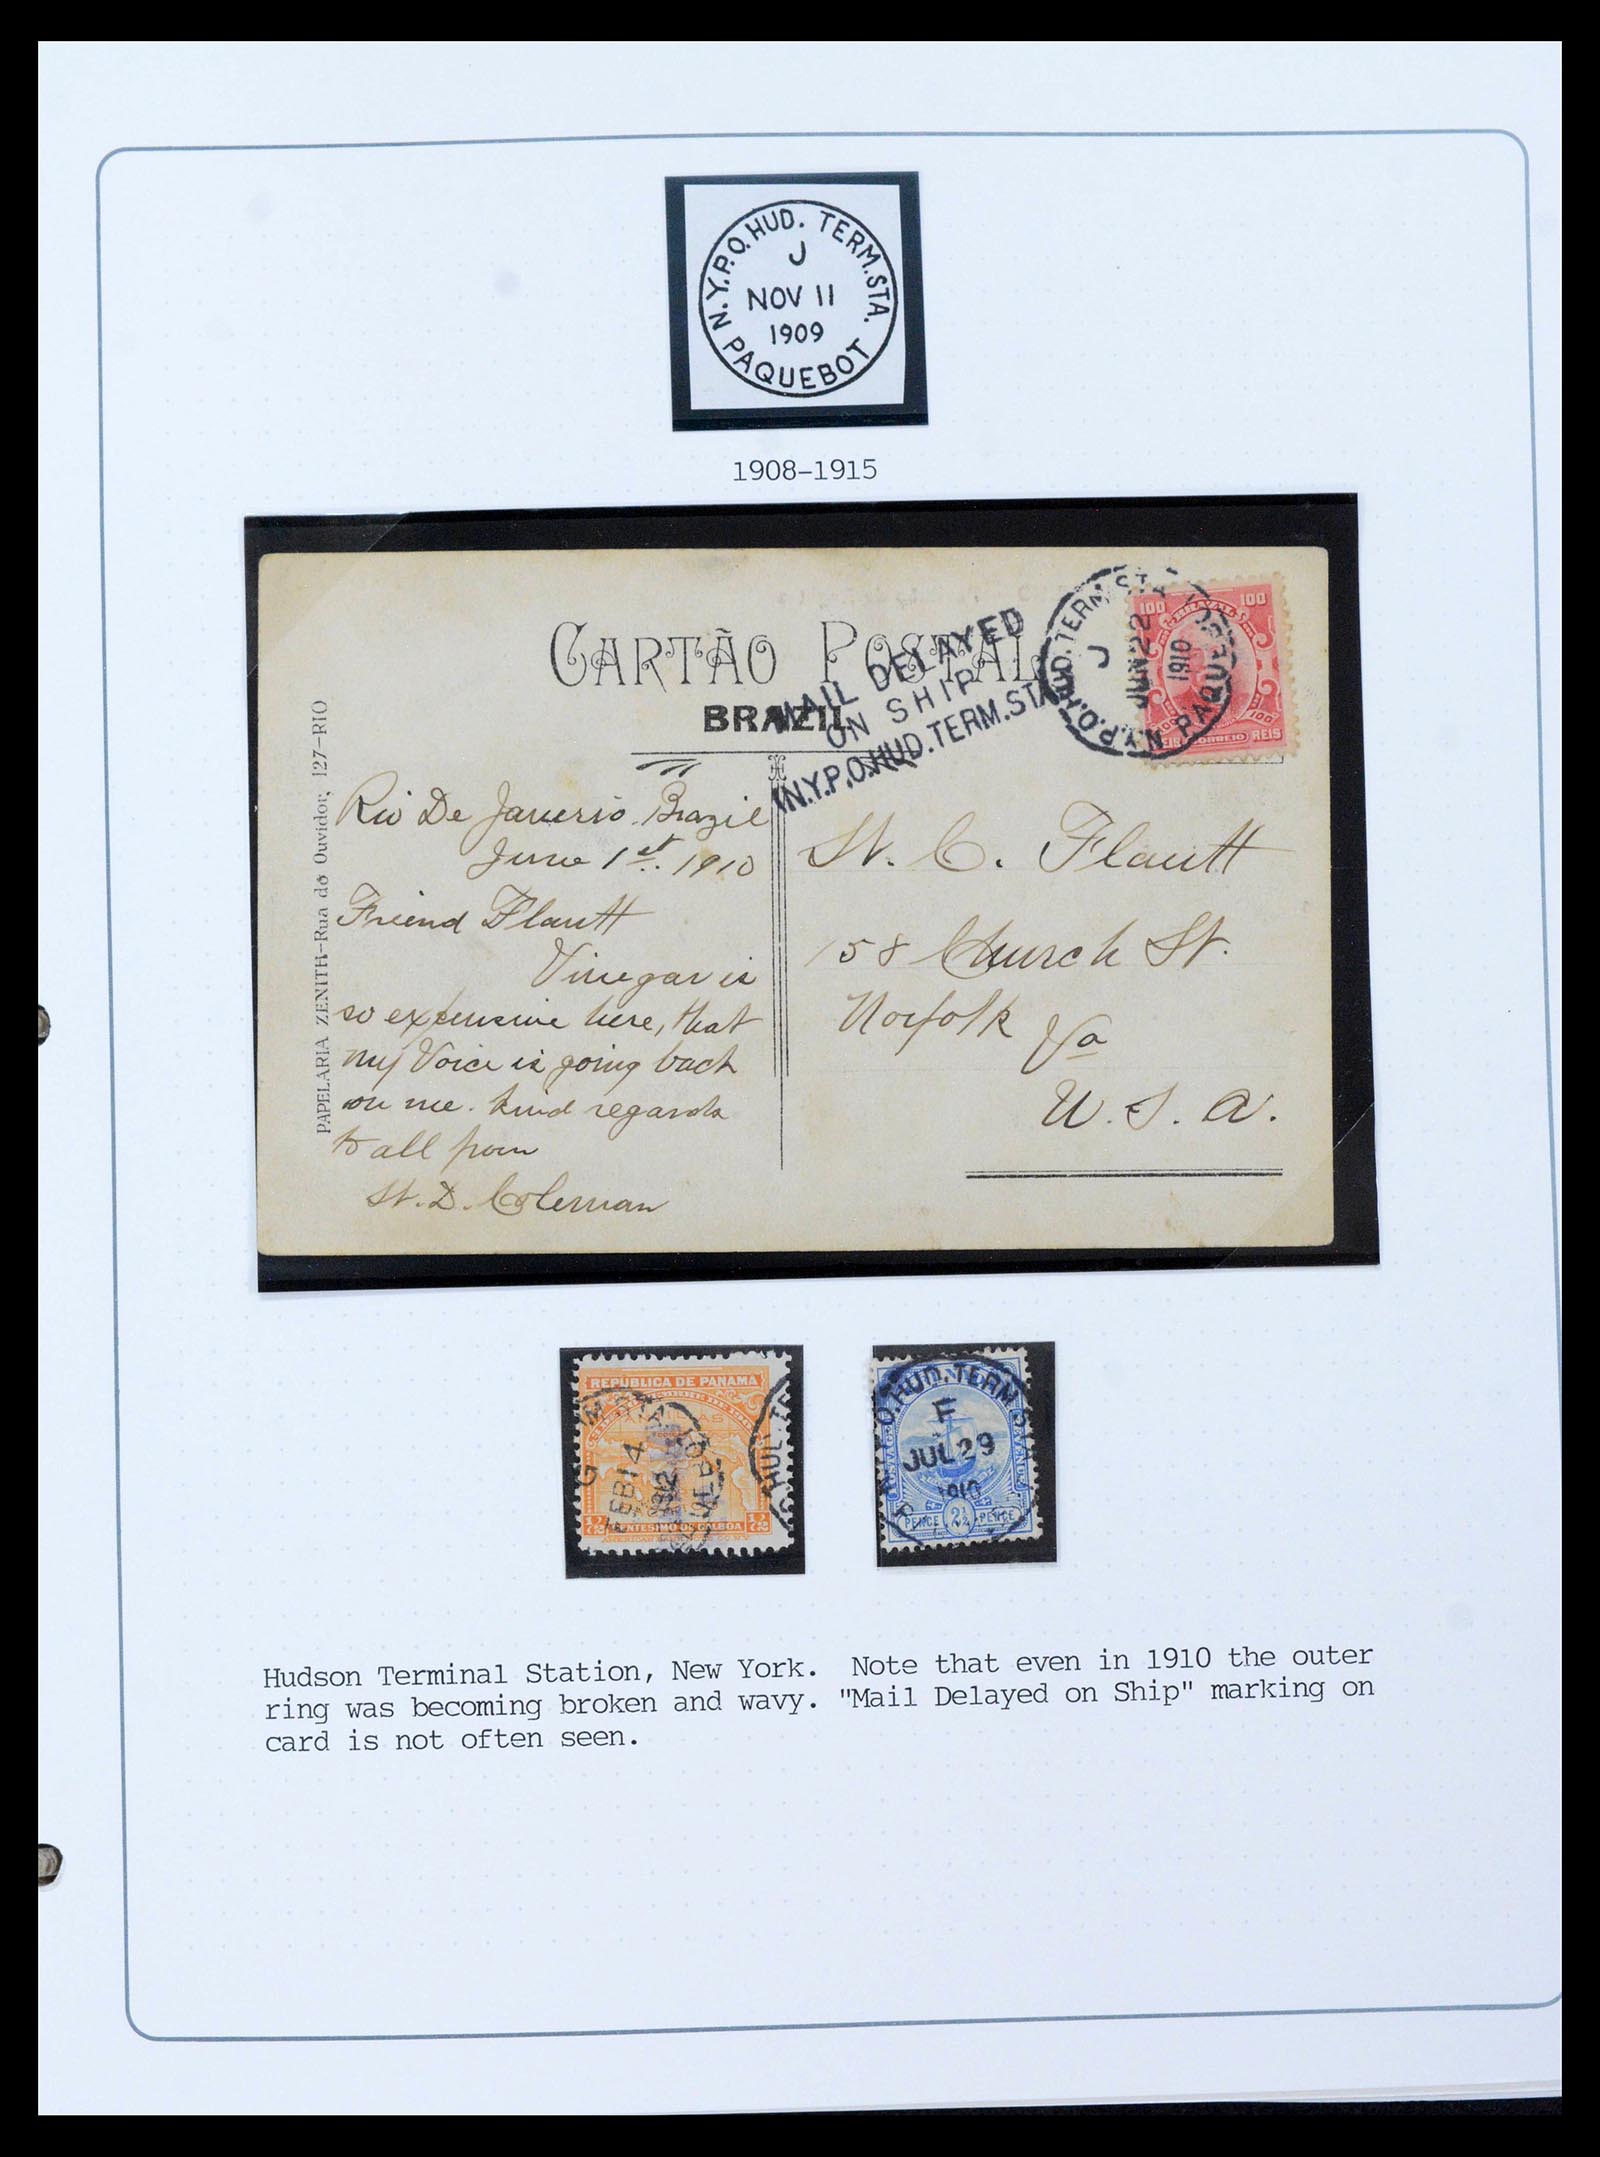 N.Y.P.O. HUD. TERM. STA.
J
NOV 11
1909
PAQUEBOT
1908-1915
CARTÃO POSTAL
BRAZIL
MAIL DELAYED
ON SHIP
N.Y.P.O. HUD. TERM. STA.
N.Y.P.O. HUD. TERM. STA.
J
JUN 22
1910
PAQUEBOT
100 BRAZIL 100
CORREIO REIS
100
PAPELARIA ZENITH-Rua do Ouvidor, 127-RIO
Rio De Janerio. Brazil
June 1st. 1910
Friend Flautt
Vinegar is
so expensive here, that
my Voice is going back
on me. kind regards
to all from
St. D. Coleman
St. C. Flautt
158 Church St.
Norfolk Va
U. S. A.
REPUBLICA DE PANAMA
G
FEB 14
1912
HUD. TE
1/2 CENTESIMO DE BALBOA 1/2
P.O. HUD. TERM. STA
F
JUL 29
1910
POSTAGE REVENUE
PENCE 2½ PENCE
Hudson Terminal Station, New York. Note that even in 1910 the outer
ring was becoming broken and wavy. "Mail Delayed on Ship" marking on
card is not often seen.